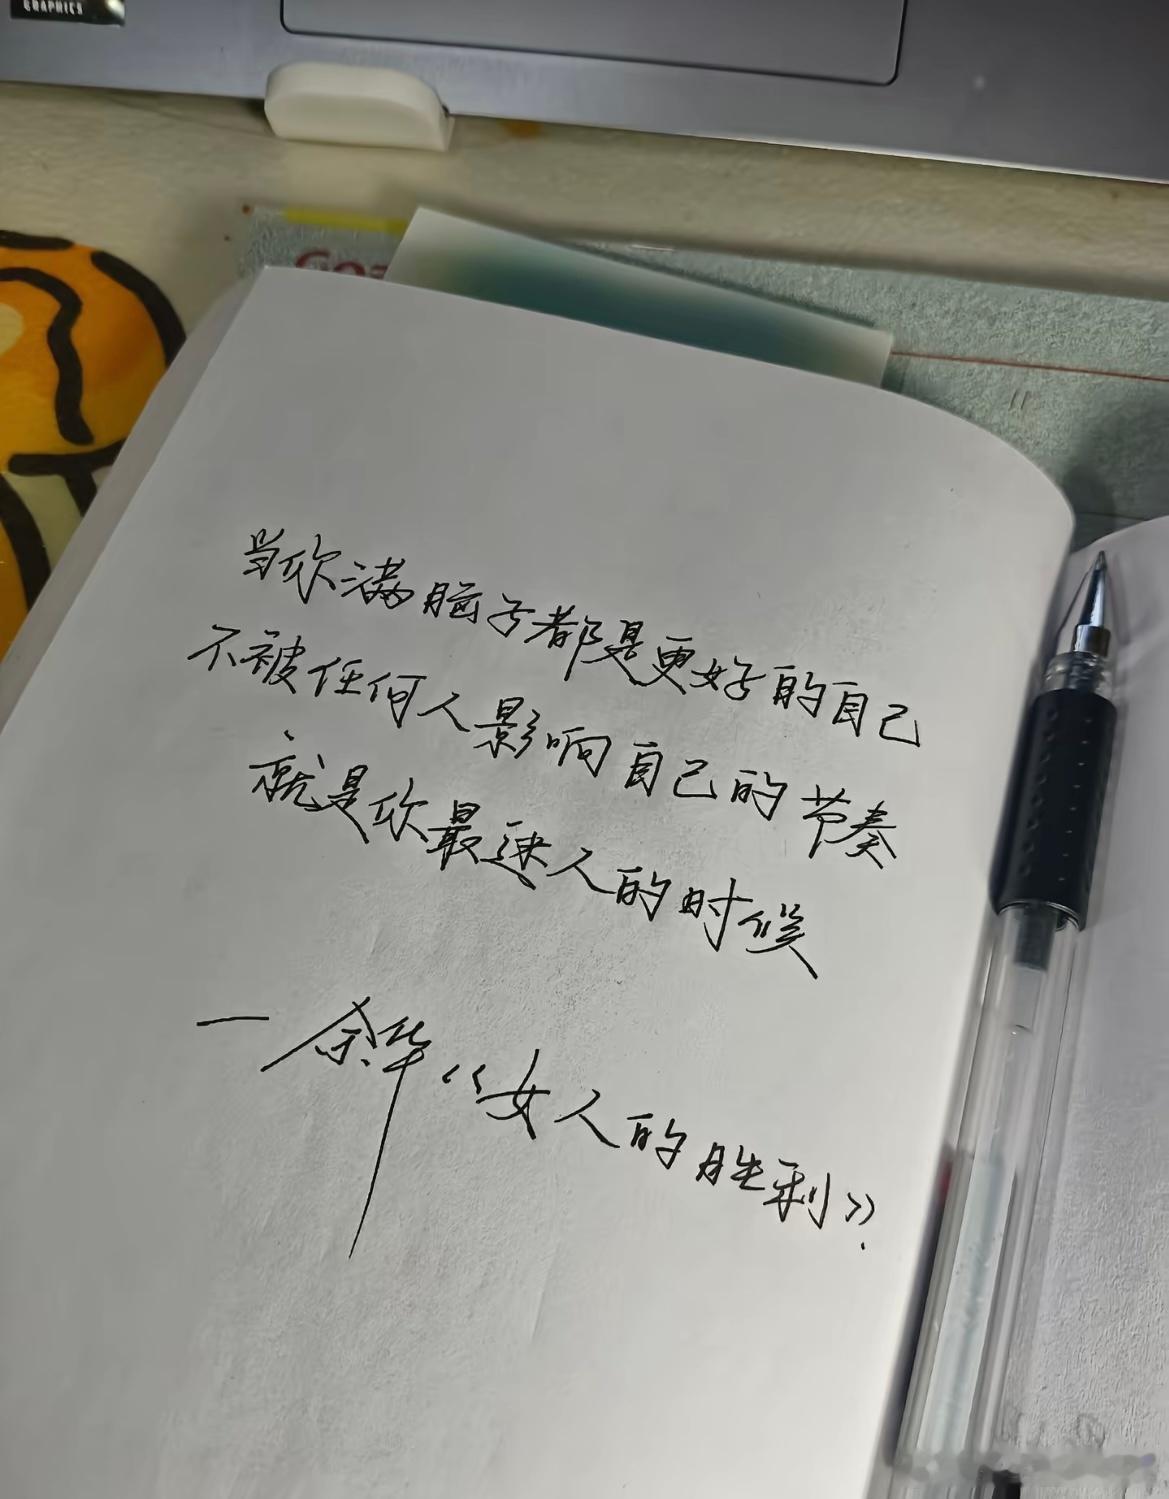 GRAPHICS
当你满脑子都是更好的自己
不被任何人影响自己的节奏
就是你最迷人的时候
一余华《女人的胜利》.